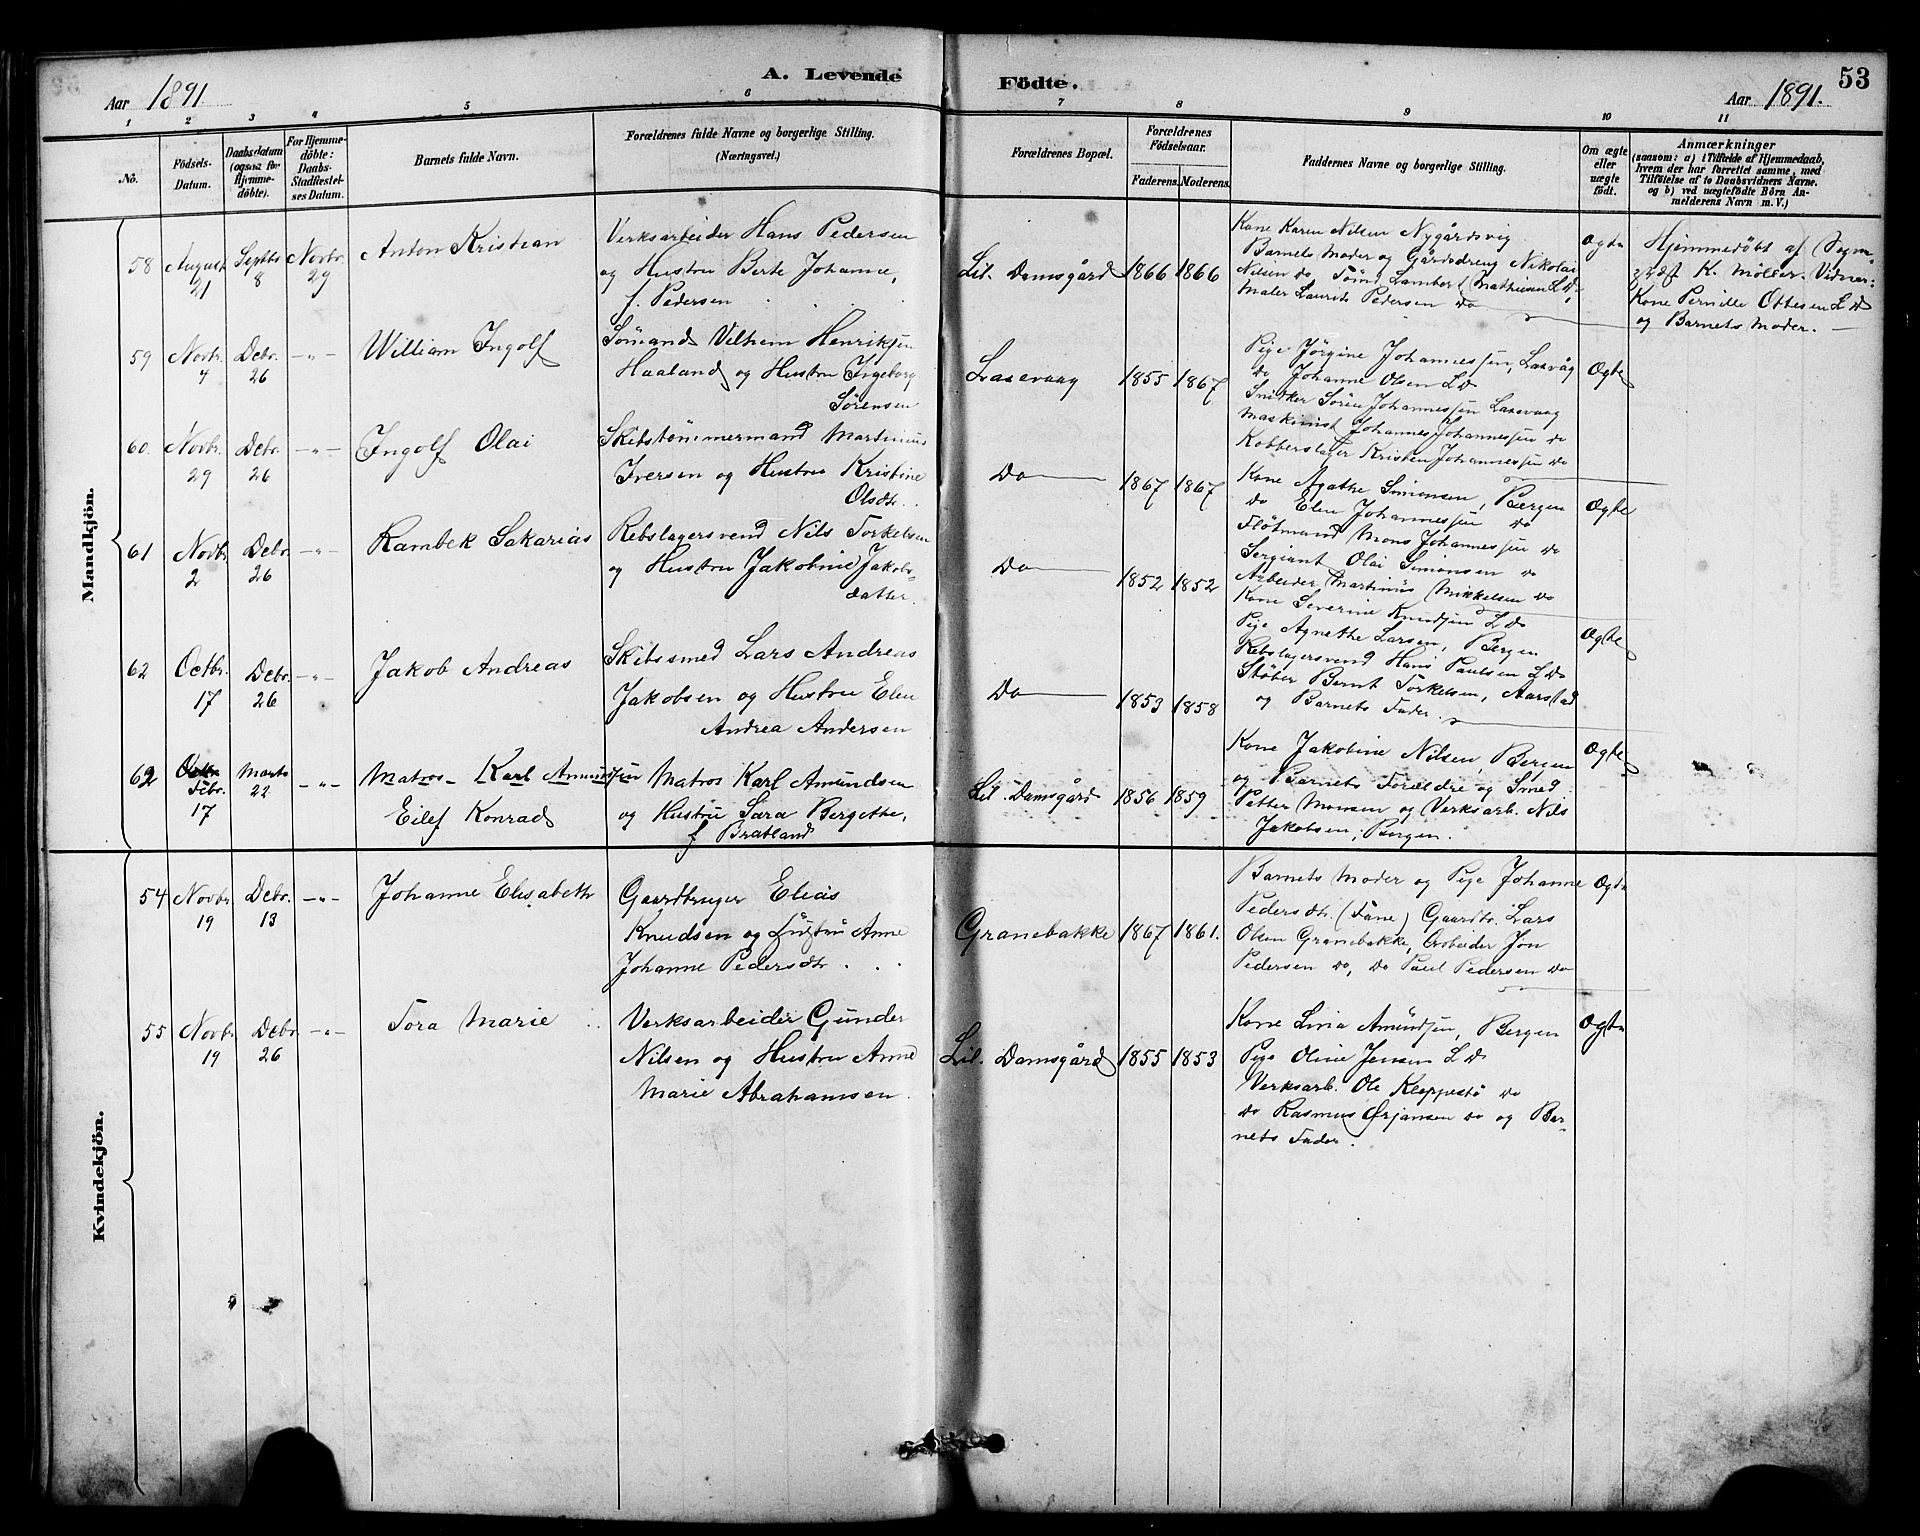 A. Levende Födte. 53
Aar 1891 Aar 1891.
1 2 3 4 5 6 7 8 9 10 11
No.
Födsels-Datum.
Daabsdatum (ogsaa for Hjemmedöbte).
For Hjemmedöbte: Daabs-Stadfæstelses Datum.
Barnets fulde Navn.
Forældrenes fulde Navne og borgerlige Stilling. (Næringsvei.)
Forældrenes Bopæl.
Forældrenes Födselsaar.
Faderens. Moderens.
Faddernes Navne og borgerlige Stilling.
Om ægte eller uægte födt.
Anmærkninger
(saasom: a) i Tilfælde af Hjemmedaab, hvem der har forrettet samme, med Tilföielse af to Daabsvidners Navne. og b) ved uægtefödte Börn Anmelderens Navn m. V.)
Mandkjön.
58 August 21 Septbr 8 Novbr. 29 Anton Kristian
Verksarbeider Hans Pedersen
og Hustru Berte Johanne,
f. Pedersen
Lil. Damsgård 1866 1866
Kone Karen Nilsen Nygårdsvig
Barnets Moder og Gårdsdreng Nikolai
Nilsen Do, Tömr. Lambert Mathiesen L D.
Maler Laurits Pedersen do
Ægte
Hjemmedöbt af
K. Möller. Vidner:
Kone Pernille Ottesen L D
og Barnets Moder.
59 Novbr. 4 Debr. 26 -"- William Ingolf
Sömand Vilhem Henriksen
Haaland og Hustru Ingeborg
Sörensen
Laxevaag 1855 1867
Pige Jörgine Johannessen, Laxvåg
do Johanne Olsen L D
Snitker Sören Johannessen Laxevaag
Maskinist Johannes Johannessen do
Kobberslager Kristen Johannessen do
Ægte
60. Novbr. 29 Debr. 26 -"- Ingolf Olai
Skibstömmermand Martinius
Iversen og Hustru Kristine
Olsdtr.
Do 1867 1867
Kone Agathe Simonsen, Bergen
do Elen Johannessen do
Flötmand Mons Johannessen do
Sergiant Olai Simonsen do
Arbeider Martinus Mikkelsen do
Ægte
61 Novbr 2 Debr. 26 -"- Rambek Sakarias
Rebslagersvend Nils Torkelsen
og Hustru Jakobine Jakobs-
datter.
Do 1852 1852
Kone Severine Knudsen L D
Pige Agnethe Larsen, Bergen
Rebslagersvend Hans Paulsen L D
Stöber Bernt Torkelsen, Aarstad
og Barnets Fader.
Ægte
62 Octbr. 17 Debr. 26 -"- Jakob Andreas
Skibssmed Lars Andreas
Jakobsen og Hustru Elen
Andrea Andersen
Do 1853 1858
Kone Jakobine Nilsen, Bergen
og Barnets Forældre og Smed
Petter Monsen og Verksarb. Nils
Jakobsen, Bergen.
Ægte
62 Febr. 17 Marts 22 -"- Matros Karl Amundsen
Eilef Konrad
Matros Karl Amundsen
og Hustru Sara Bergette,
f Bratland
Lil. Damsgård 1856 1859
Kvindekjön.
54 Novbr. 19 Debr. 13 -"- Johanne Elisabeth
Gaardbruger Elias
Knudsen og Hustru Anne
Johanne Pedersdtr.
Granebakke 1867 1861.
Barnets Moder og Pige Johanne
Pedersdtr. (Fane) Gaardbr. Lars
Olsen Granebakke, Arbeider Jon
Pedersen do, do Paul Pedersen do
Ægte
55 Novbr 19 Debr 26 -"- Tora Marie
Verksarbeider Gunder
Nilsen og Hustru Anne
Marie Abrahamsen.
Lil. Damsgård 1855 1853
Kone Lina Amundsen, Bergen
Pige Oline Jensen L D
Verksarb. Ole Kleppestö do
do Rasmus Ørjansen do og Bar-
nets Fader.
Ægte